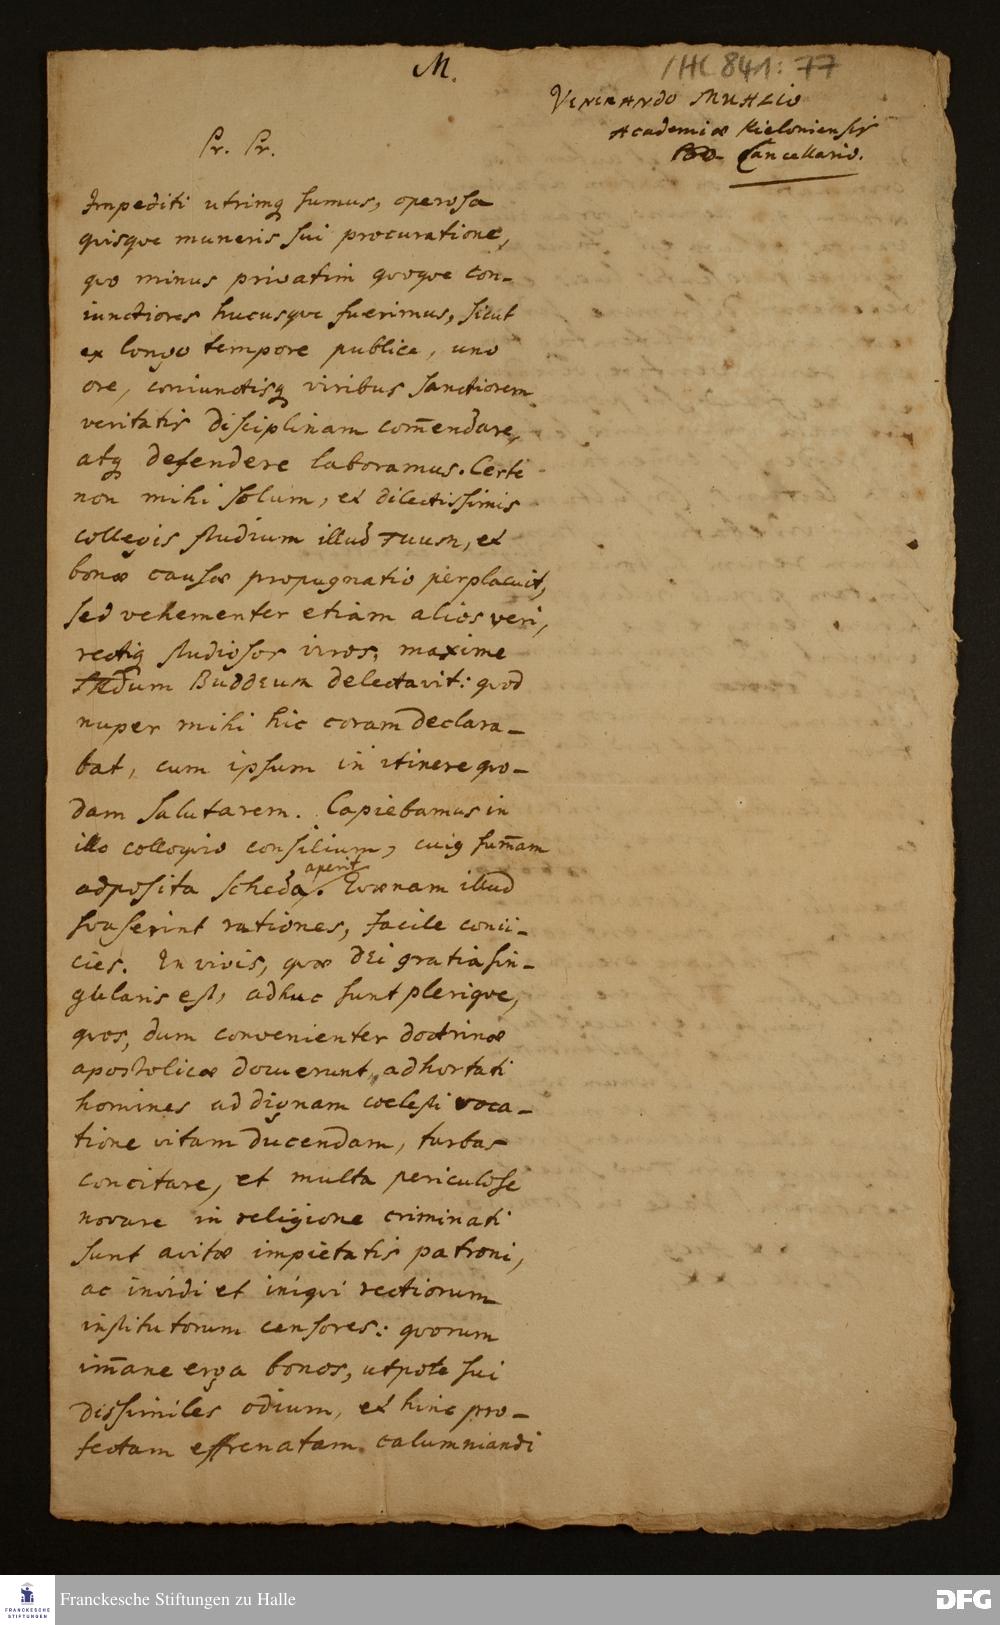 M.
/HC 841:77
Venerando Muhlio
Academiæ Kieloniensis
Cancellario.
Pr. Pr.
Impediti utrimq sumus, operosa
quisque muneris sui procuratione,
quo minus privatim quoque con-
iunctiores hucusque fuerimus, sicut
ex longo tempore publice, uno
ore, coniunctisq viribus sanctiorem
veritatis disciplinam com̄endare,
atq defendere laboramus. Certe
non mihi solum, et dilectissimis
collegis studium illud Tuum, et
bonæ causæ propugnatio perplacuit,
sed vehementer etiam alios veri,
rectiq studiosos viros, maxime
Buddeum delectavit: quod
nuper mihi hic coram declara-
bat, cum ipsum in itinere quo-
dam salutarem. Capiebamus in
illo colloquio consilium, cuius sum̄am
aperit
adposita scheda. Quænam illud
suaserint rationes, facile conii-
cies. In vivis, quæ DEi gratia sin-
gularis est, adhuc sunt plerique,
quos, dum convenienter doctrinæ
apostolicæ docuerunt, adhortati
homines ad dignam coelesti voca-
tione vitam ducendam, turbas
concitare, et multa periculose
novare in religione criminati
sunt avitæ impietatis patroni,
ac invidi et iniqui rectiorum
institutorum censores: quorum
im̄ane erga bonos, utpote sui
dissimiles odium, et hinc pro-
fectam effrenatam calumniandi
FRANCKESCHE
STIFTUNGEN
Franckesche Stiftungen zu Halle
DFG